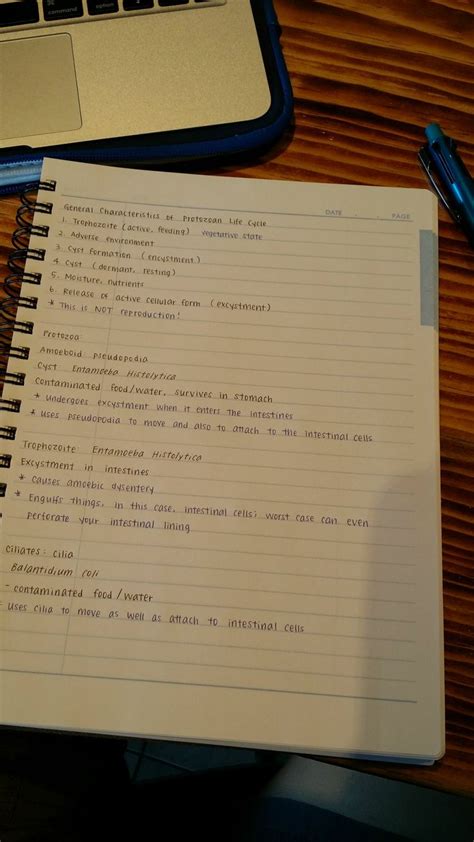 control
option
command
DATE . . PAGE
General Characteristics of Protozoan Life Cycle
1. Trophozoite (active, feeding) vegetative state
2. Adverse environment
3. Cyst formation (encystment)
4. Cyst (dormant, resting)
5. Moisture, nutrients
6. Release of active cellular form (excystment)
* This is NOT reproduction!
Protozoa
Amoeboid pseudopodia
Cyst Entamoeba Histolytica
Contaminated food/water, survives in stomach
* undergoes excystment when it enters the intestines
* uses pseudopodia to move and also to attach to the intestinal cells
Trophozoite Entamoeba Histolytica
Excystment in intestines
* Causes amoebic dysentery
* Engulfs things, in this case, intestinal cells; worst case can even
perforate your intestinal lining
Ciliates: cilia
Balantidium coli
- contaminated food/water
uses cilia to move as well as attach to intestinal cells